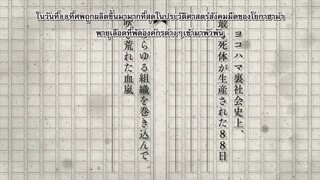 ในวันที่88ที่ศพถูกผลิตขึ้นมามากที่สุดในประวัติศาสตร์สังคมมืดของโยกาฮาม่า
พายุเลือดที่พัดองค์กรต่างๆเข้ามาพัวพัน
ヨコハマ裏社会史上、
最も死体が生産された88日
あらゆる組織を巻き込んで
吹き荒れた血嵐